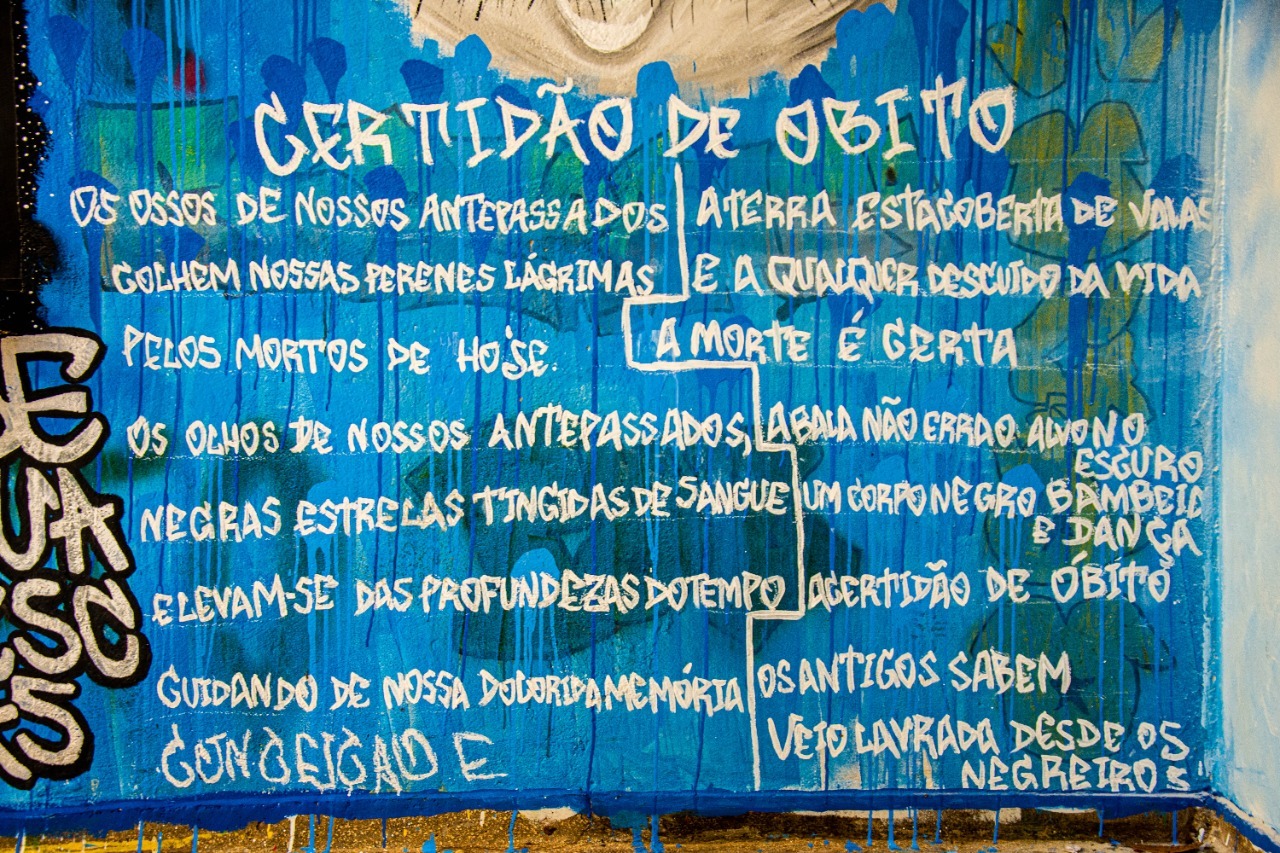 CERTIDÃO DE OBITO
OS OSSOS DE NOSSOS ANTEPASSADOS
COLHEM NOSSAS PERENES LÁGRIMAS
PELOS MORTOS DE HOJE.
OS OLHOS DE NOSSOS ANTEPASSADOS,
NEGRAS ESTRELAS TINGIDAS DE SANGUE
ELEVAM-SE DAS PROFUNDEZAS DO TEMPO
GUIDANDO DE NOSSA DOLORIDA MEMÓRIA
CONCEIÇAO E
A TERRA ESTA COBERTA DE VALAS
E A QUALQUER DESCUIDO DA VIDA
A MORTE É CERTA
A BALA NÃO ERRA O ALVO NO
ESCURO
UM CORPO NEGRO BAMBEIA
E DANÇA
A CERTIDÃO DE ÓBITO
OS ANTIGOS SABEM
VEIO LAVRADA DESDE OS
NEGREIROS